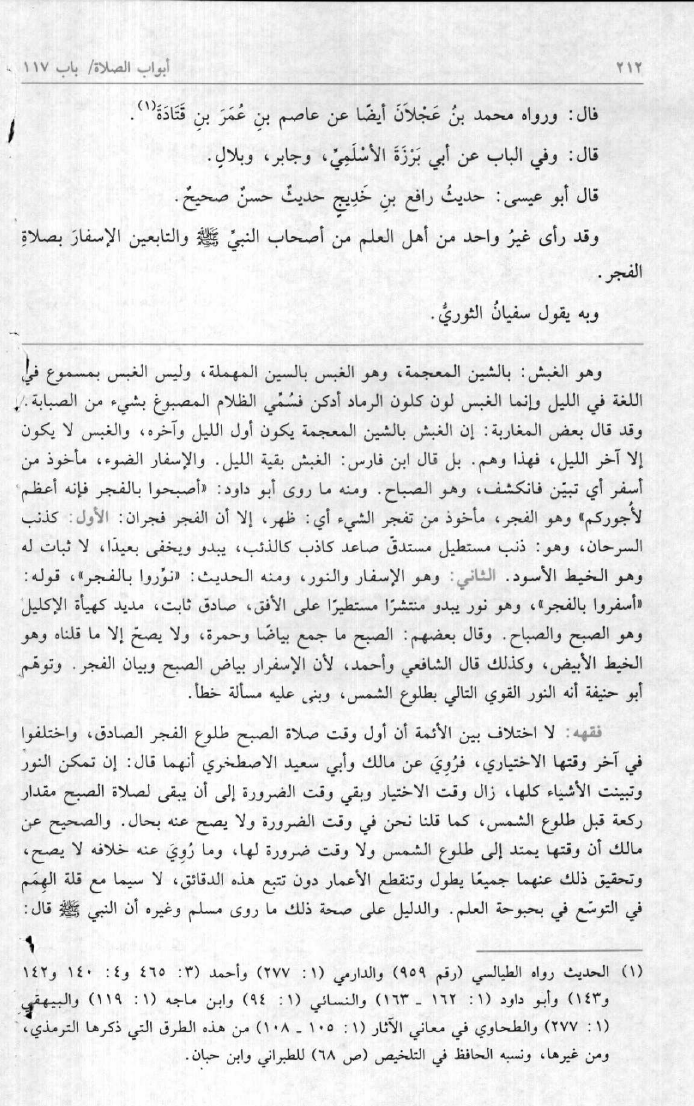 ٢١٢ أبواب الصلاة/ باب ١١٧
قال: ورواه محمد بنُ عَجْلاَنَ أيضًا عن عاصم بنِ عُمَرَ بنِ قَتَادَةَ(١).
قال: وفي الباب عن أبي بَرْزَةَ الأسْلَمِيِّ، وجابر، وبلالٍ.
قال أبو عيسى: حديثُ رافع بنِ خَدِيجٍ حديثٌ حسنٌ صحيحٌ.
وقد رأى غيرُ واحد من أهل العلم من أصحاب النبيِّ ﷺ والتابعين الإسفارَ بصلاةِ
الفجر.
وبه يقول سفيانُ الثوريُّ.
وهو الغبش: بالشين المعجمة، وهو الغبس بالسين المهملة، وليس الغبس بمسموع في
اللغة في الليل وإنما الغبس لون كلون الرماد أدكن فسُمِّي الظلام المصبوغ بشيء من الصبابة.
وقد قال بعض المغاربة: إن الغبش بالشين المعجمة يكون أول الليل وآخره، والغبس لا يكون
إلا آخر الليل، فهذا وهم. بل قال ابن فارس: الغبش بقية الليل. والإسفار الضوء، مأخوذ من
أسفر أي تبيّن فانكشف، وهو الصباح. ومنه ما روى أبو داود: «أصبحوا بالفجر فإنه أعظم
لأُجوركم» وهو الفجر، مأخوذ من تفجر الشيء أي: ظهر، إلا أن الفجر فجران: الأول: كذنب
السرحان، وهو: ذنب مستطيل مستدقّ صاعد كاذب كالذئب، يبدو ويخفى بعيدًا، لا ثبات له
وهو الخيط الأسود. الثاني: وهو الإسفار والنور، ومنه الحديث: «نوِّروا بالفجر»، قوله:
«أسفروا بالفجر»، وهو نور يبدو منتشرًا مستطيرًا على الأفق، صادق ثابت، مديد كهيأة الإكليل
وهو الصبح والصباح. وقال بعضهم: الصبح ما جمع بياضًا وحمرة، ولا يصحّ إلا ما قلناه وهو
الخيط الأبيض، وكذلك قال الشافعي وأحمد، لأن الإسفرار بياض الصبح وبيان الفجر. وتوهّم
أبو حنيفة أنه النور القوي التالي بطلوع الشمس، وبنى عليه مسألة خطأ.
فقهه: لا اختلاف بين الأئمة أن أول وقت صلاة الصبح طلوع الفجر الصادق، واختلفوا
في آخر وقتها الاختياري، فرُوِيَ عن مالك وأبي سعيد الاصطخري أنهما قال: إن تمكن النور
وتبينت الأشياء كلها، زال وقت الاختيار وبقي وقت الضرورة إلى أن يبقى لصلاة الصبح مقدار
ركعة قبل طلوع الشمس، كما قلنا نحن في وقت الضرورة ولا يصح عنه بحال. والصحيح عن
مالك أن وقتها يمتد إلى طلوع الشمس ولا وقت ضرورة لها، وما رُوِيَ عنه خلافه لا يصح،
وتحقيق ذلك عنهما جميعًا يطول وتنقطع الأعمار دون تتبع هذه الدقائق، لا سيما مع قلة الهِمَم
في التوسّع في بحبوحة العلم. والدليل على صحة ذلك ما روى مسلم وغيره أن النبي ﷺ قال:
(١) الحديث رواه الطيالسي (رقم ٩٥٩) والدارمي (١: ٢٧٧) وأحمد (٣: ٤٦٥ و٤: ١٤٠ و١٤٢
و١٤٣) وأبو داود (١: ١٦٢ ـ ١٦٣) والنسائي (١: ٩٤) وابن ماجه (١: ١١٩) والبيهقي
(١: ٢٧٧) والطحاوي في معاني الآثار (١: ١٠٥ ـ ١٠٨) من هذه الطرق التي ذكرها الترمذي،
ومن غيرها، ونسبه الحافظ في التلخيص (ص ٦٨) للطبراني وابن حبان.